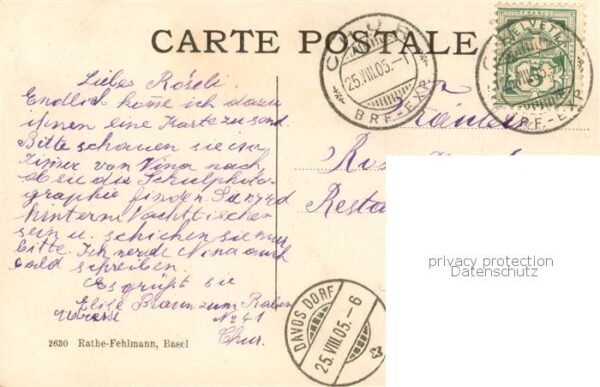 CARTE POSTALE
HELVETIA
FRANCO
5
CHUR
25.VIII.05.-1
BRF-EXP.
BRF-EXP.
Liebes Röseli
Endlich komme ich dazu
ihnen eine Karte zu send
Bitte schauen sie im
Zimer von Nina nach
ob sie die Schulphoto-
graphie finden
hinterm Nachttischen
sein u. schicken sie mir
bitte. Ich werde Nina auch
bald schreiben.
Es grüsst sie
Elise Braun zum Raben
Adresse No 41
Chur.
Fräulein
Restau
DAVOS DORF
25.VIII.05.-6
2630 Rathe-Fehlmann, Basel
privacy protection
Datenschutz